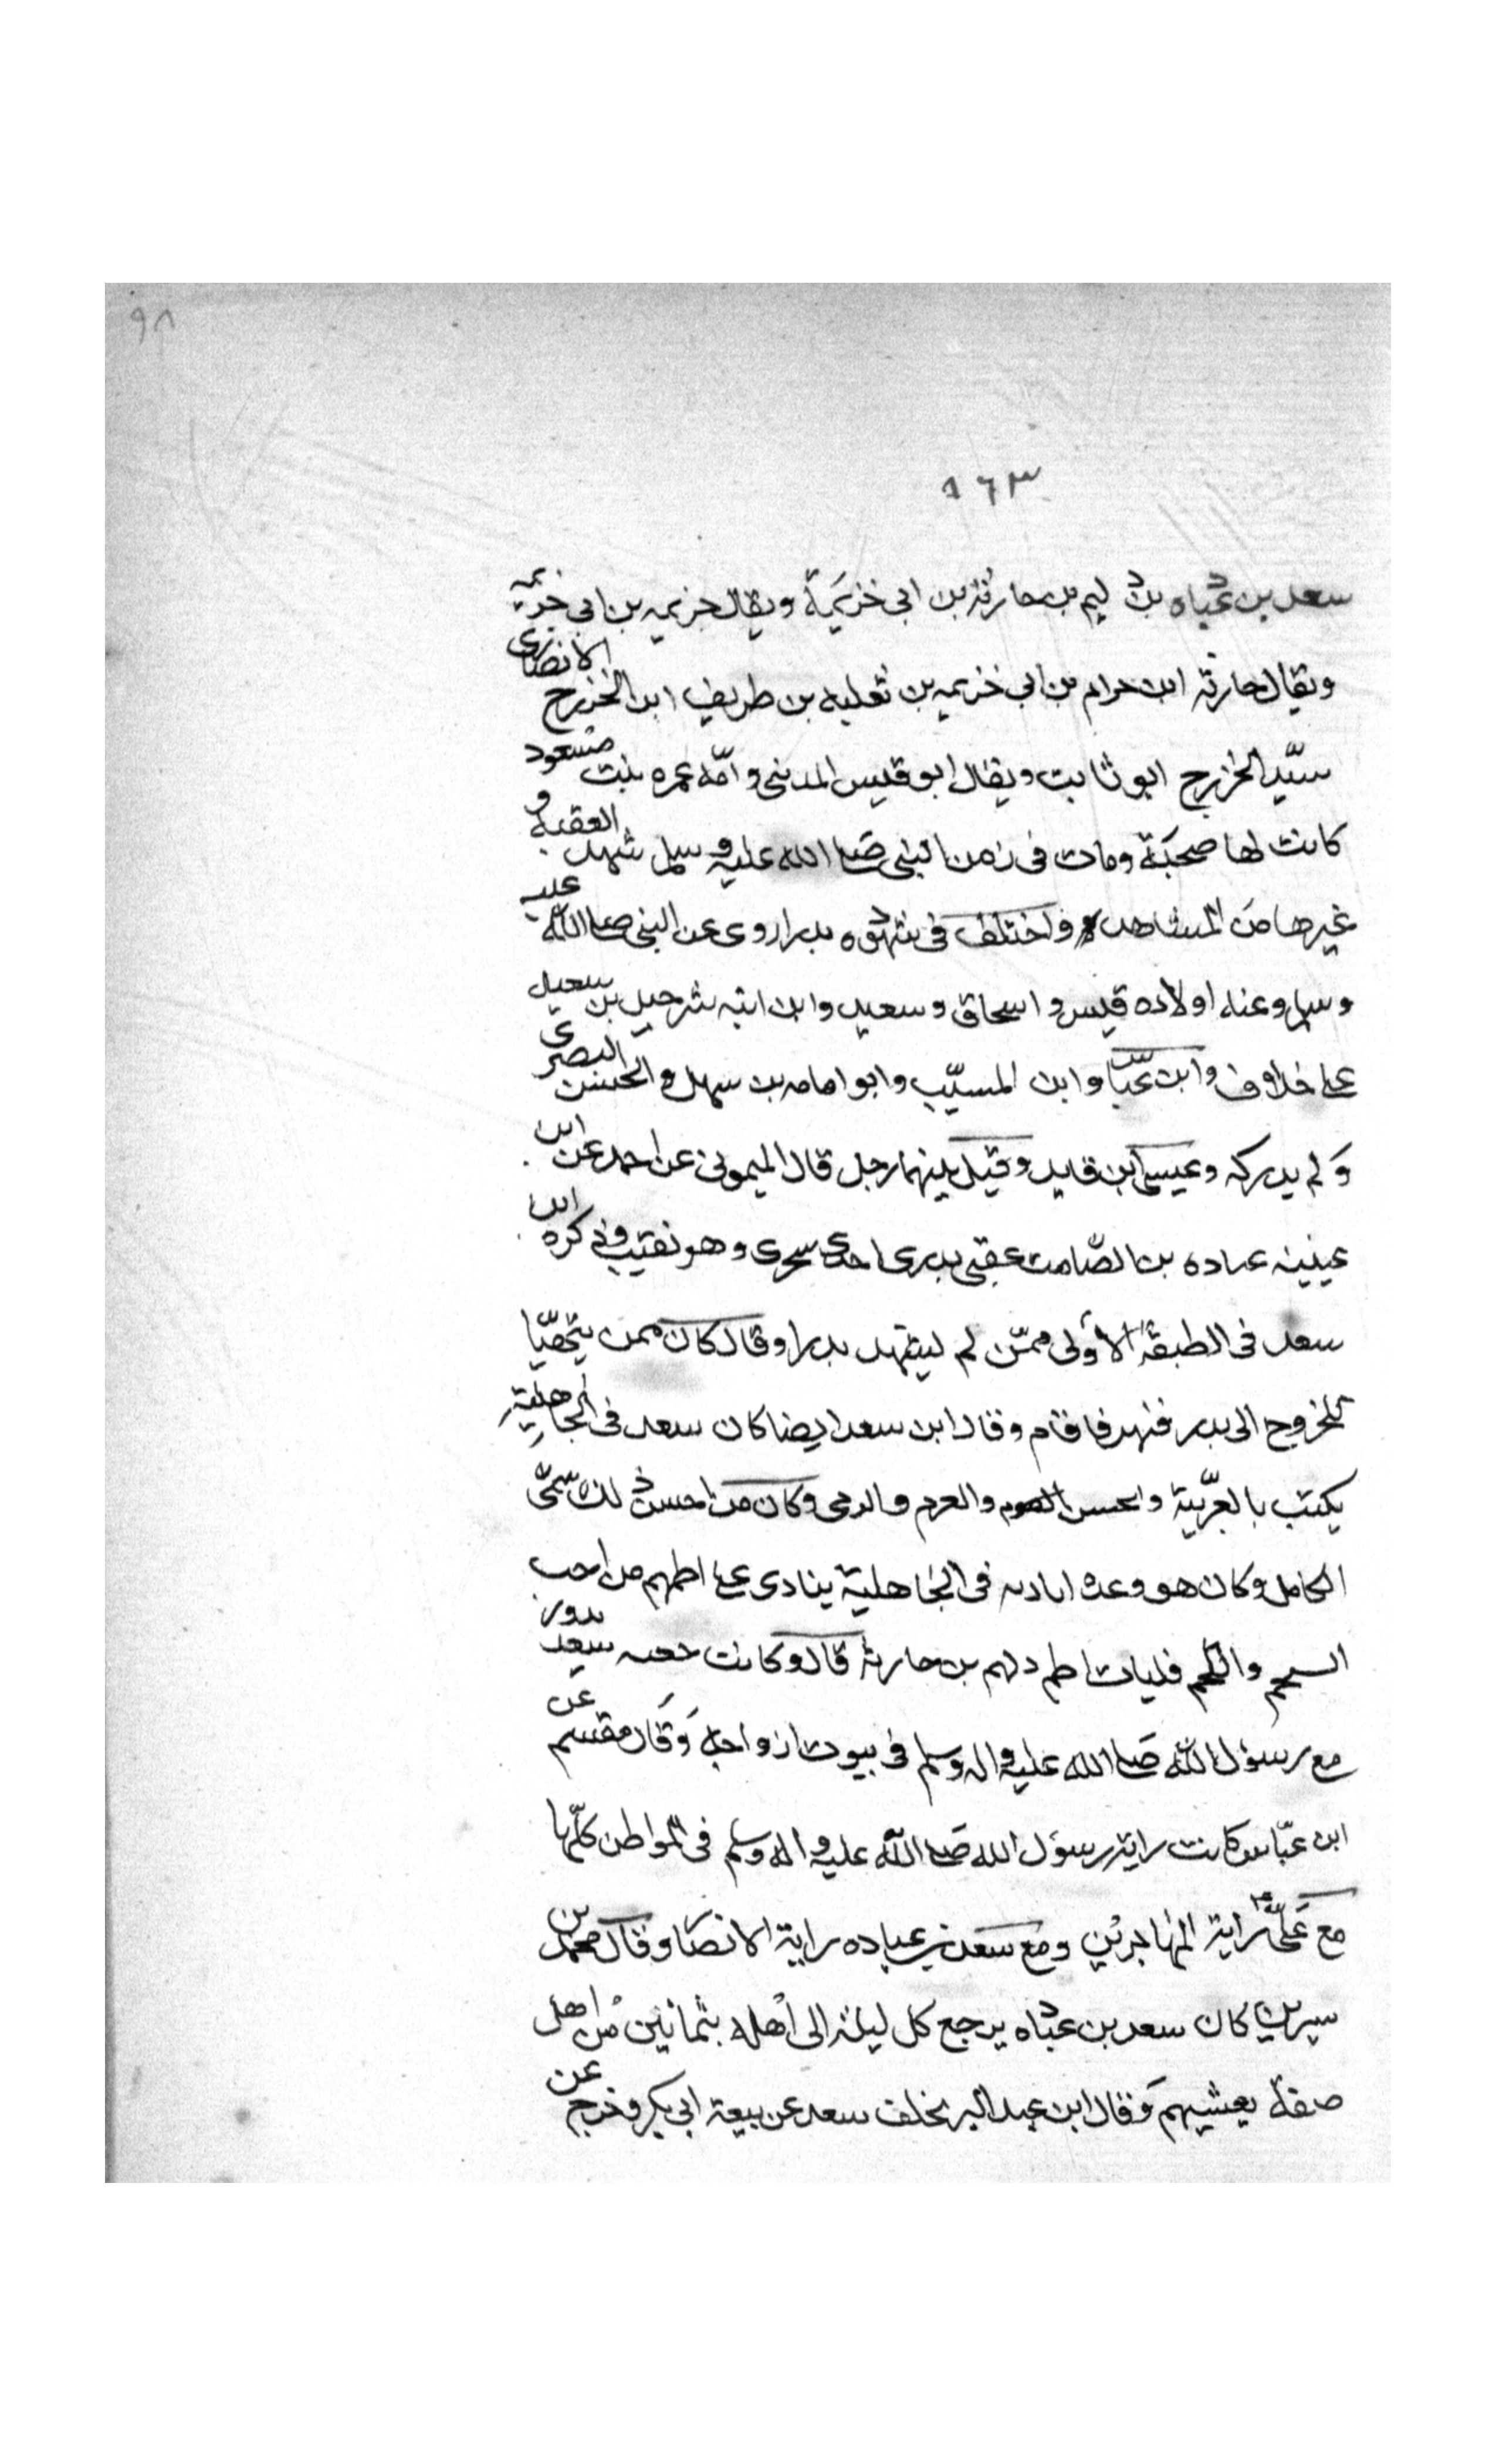 ٩٨
١٦٣
سعد بن عباده بن دليم بن حارثة بن ابى خزيمة ويقال خزيمه بن ابى خزيمه
ويقال حارثه ابن حرام بن ابى خزيمه بن ثعلبه بن طريف ابن الخزرج الانصارى
سيّد الخزرج ابو ثابت ويقال ابو قيس المدنى وامّه عمره بنت مسعود
كانت لها صحبة ومات فى زمن النبى صلى الله عليه وسلم شهد العقبة و
غيرها من المشاهد واختلف فى شهوده بدرا روى عن النبى صلى الله عليه
وسلم وعنه اولاده قيس واسحاق وسعيد وابن ابنه شرحبيل بن سعيد
على خلاف وابن عبّاس وابن المسيّب وابو امامه بن سهل والحسن البصرى
ولم يدركه وعيسى ابن فايد وقيل بينهما رجل قال الميمونى عن احمد عن ابن
عيينه عباده بن الصّامت عقبى بدرى احدى شجرى وهو نقيب وذكره ابن
سعد فى الطبقة الاولى ممّن لم يشهد بدرا وقال كان ممن يتهيّا
للخروج الى بدر فنهد فاقام وقال ابن سعد ايضا كان سعد فى الجاهلية
يكتب بالعربّية ويحسن العوم والرمى وكان من احسن ذلك سمّى
الكامل وكان هو وعده ابادىه فى الجاهلية ينادى على اطمهم من احب
الشحم واللحم فليات اطم دلهم بن حارثة قال وكانت جفنه سعد تدور
مع رسول الله صلى الله عليه واله وسلم فى بيوت ازواجه وقال مقسم عن
ابن عبّاس كانت راية رسول الله صلى الله عليه واله وسلم فى المواطن كلّها
مع علىّ راية المهاجرين ومع سعد بن عباده راية الانصار وقال محمد بن
سيرين كان سعد بن عباده يرجع كل ليلة الى اهله بثمانين من اهل
صفة يعشيهم وقال ابن عبد البر تخلف سعد عن بيعة ابى بكر وخرج عن